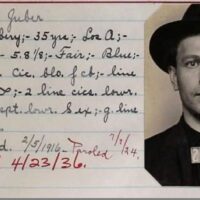 Juber
bery;- 35 yrs;- Los A;-
- 5.8 1/8;- Fair,- Blue;-
Cic. blo. f cb;- line
X;- 2 line cics. lowr.
lowr. S ex;- g-line
d. 2/5/1916- Paroled 7/3/24.
4/23/36.
?